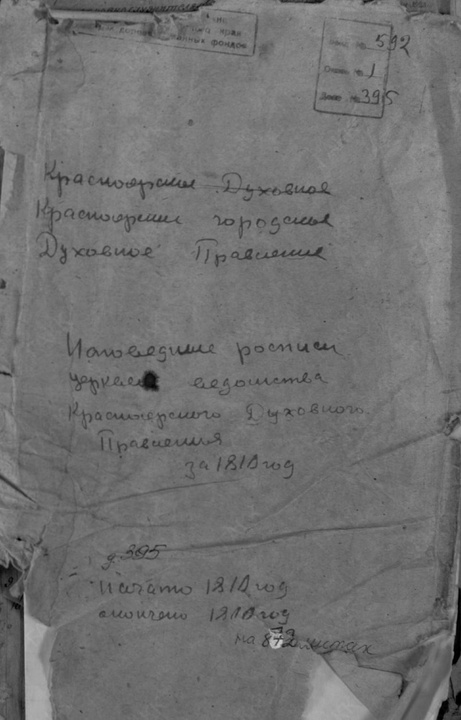 фондов
592
1
395
Красноярское Духовное
Красноярское городское
Духовное Правление
Исповедные росписи
церквей ведомства
Красноярского Духовного
Правления
за 1810 год
д 395
Начато 1810 год
окончено 1810 год
на 872 листах